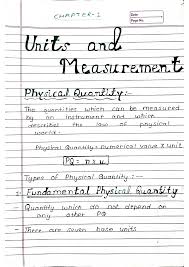 CHAPTER-1
Date
Page No.
Units and
Measurement
Physical Quantity:-
The quantities which can be measured
by an instrument and which
describes the law of physical
world.
Physical Quantity = numerical value X unit
PQ = n x u
Types of Physical Quantity:-
Fundamental Physical Quantity
Quantity which do not depend on
any other PQ
There are seven base units